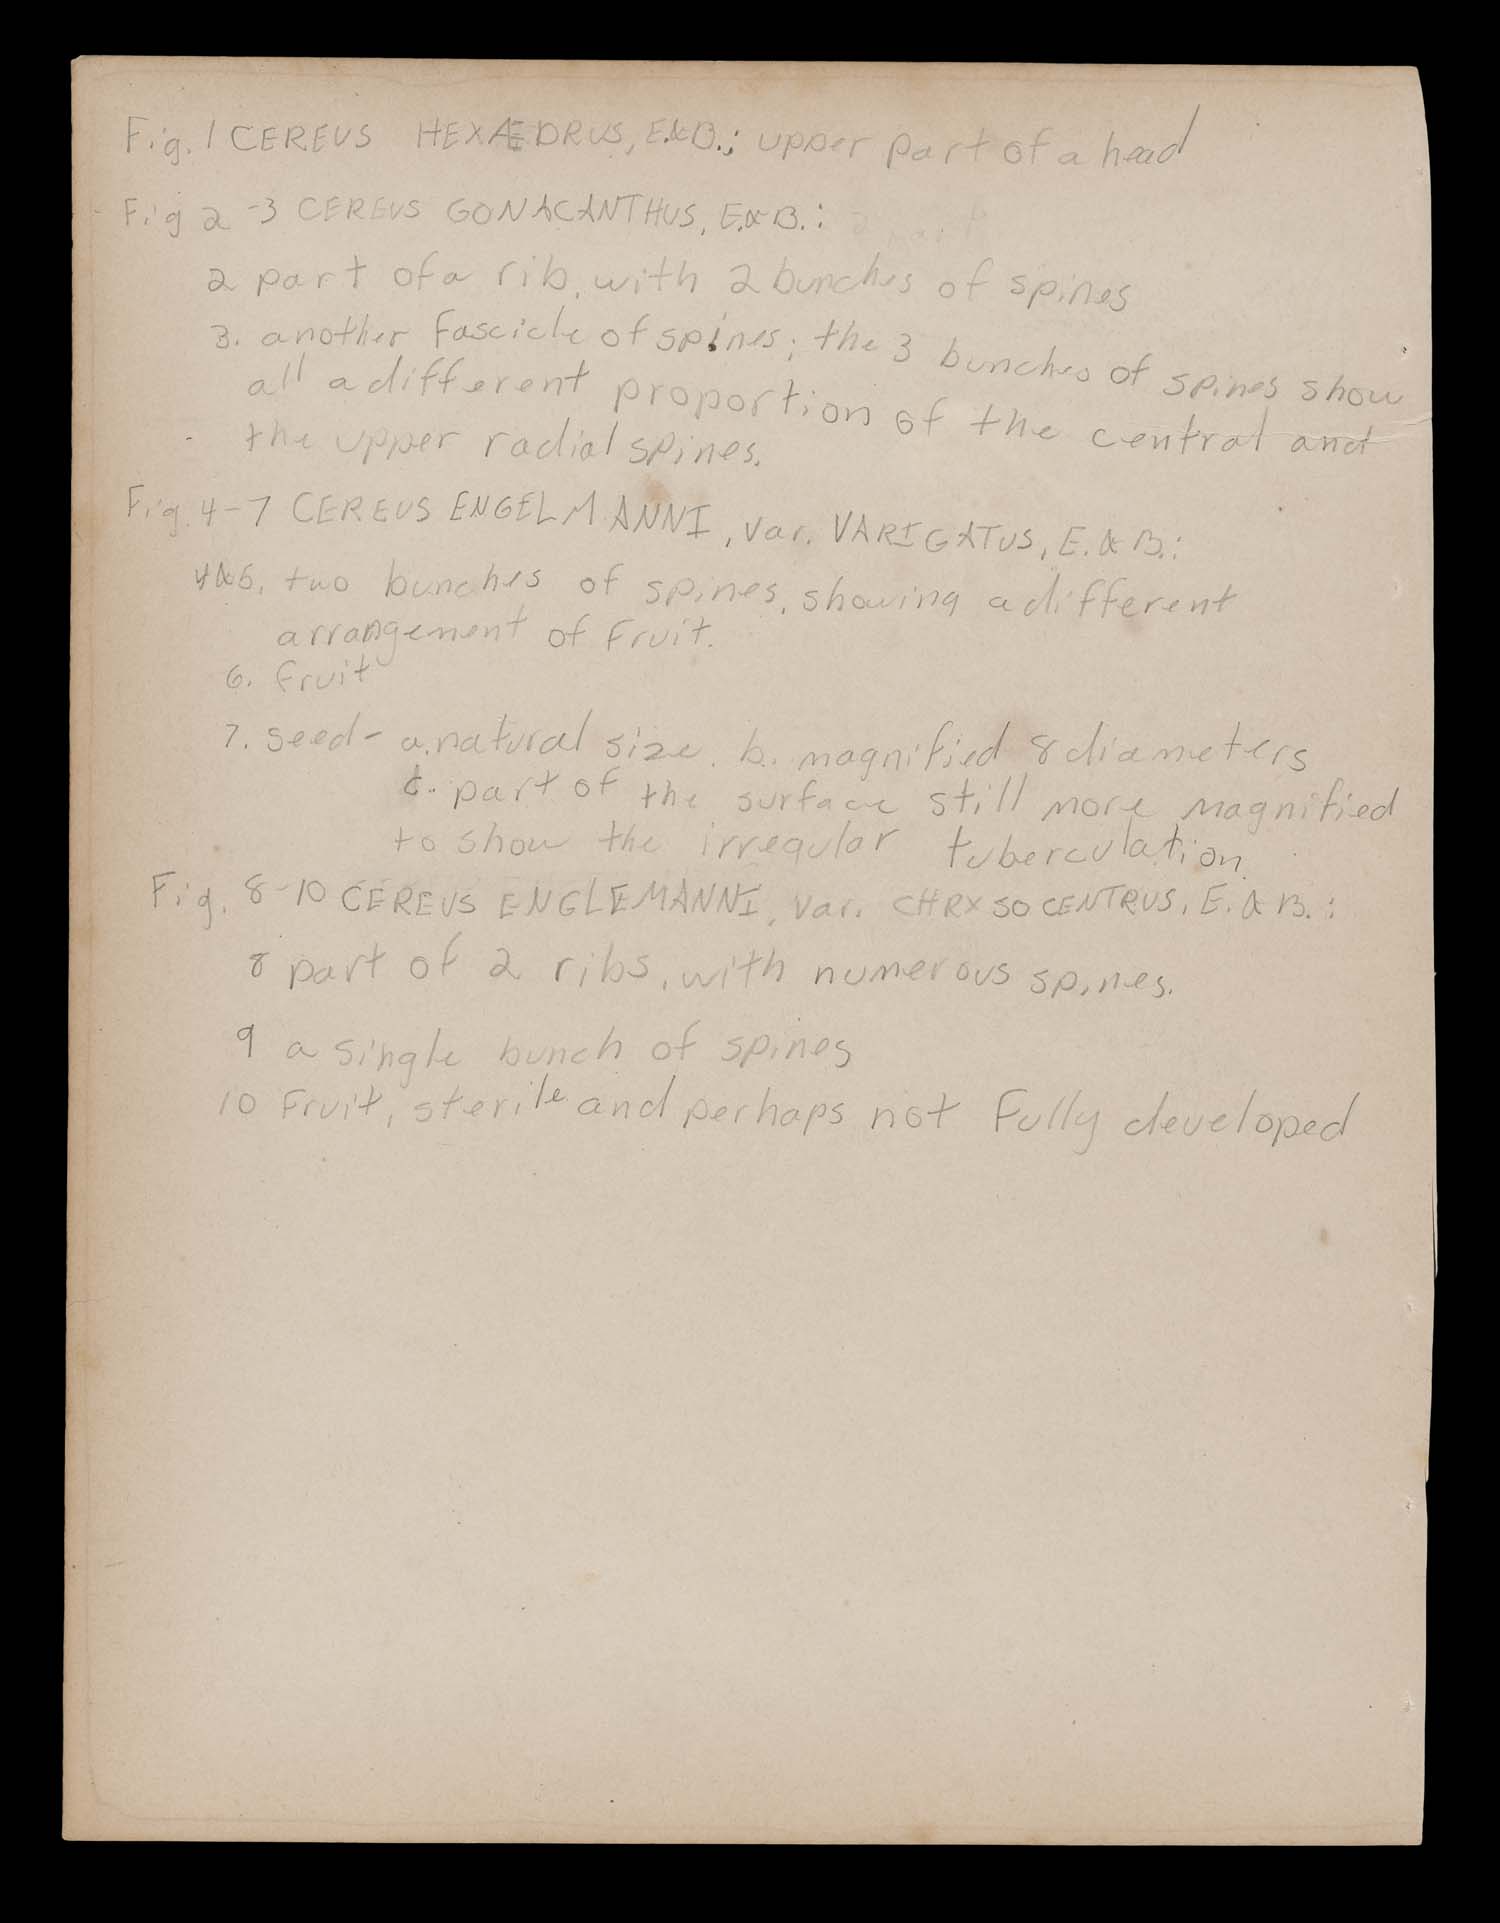 Fig. 1 CEREUS HEXÆDRUS, E.&B.; upper part of a head
Fig 2-3 CEREUS GONACANTHUS, E.&B.:
2 part of a rib, with 2 bunches of spines
3. another fascicle of spines; the 3 bunches of spines show
all a different proportion of the central and
the upper radial spines.
Fig. 4-7 CEREUS ENGELMANNI, var. VARIGATUS, E. & B.:
4&5. two bunches of spines, showing a different
arrangement of fruit.
6. fruit
7. seed- a. natural size. b. magnified 8 diameters
c. part of the surface still more magnified
to show the irregular tuberculation.
Fig. 8-10 CEREUS ENGLEMANNI, var. CHRYSOCENTRUS, E. & B.:
8 part of 2 ribs, with numerous spines.
9 a single bunch of spines
10 Fruit, sterile and perhaps not fully developed